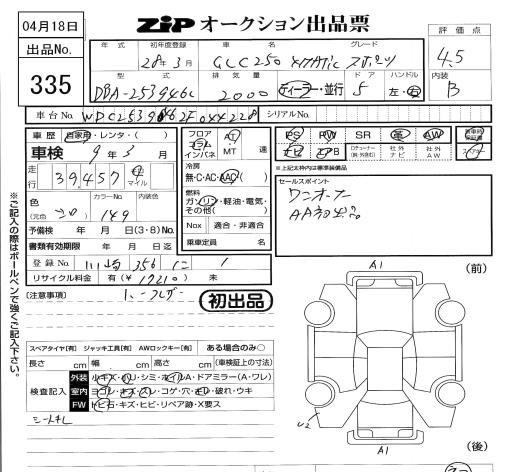 04月18日
ZiP オークション出品票
出品No.
335
年式 初年度登録 車名 グレード
28年3月 GLC250 4MATIC スポーツ
型式 排気量 ドア ハンドル
DBA-253946C 2000 ディーラー・並行 5 左・右
評価点
4.5
内装
B
車台No. WDC2539462F044228 シリアルNo.
車歴 自家用・レンタ・( )
車検 9年3月
走行 39,457 km マイル
色 (元色) カラーNo. 149 内装色
予備検 年 月 日(3・8)No.
書類有効期限 年 月 日迄
登録No. 川崎 356 1
リサイクル料金 有(¥17210) 未
フロア コラム インパネ AT・MT 速
冷房
無・C・AC・AAC
燃料
ガソリン・軽油・電気・その他( )
Nox 適合・非適合
乗車定員 名
PS PW SR 革 AW 新車時保証書
ナビ エアB TVチューナー(純・外含む) 社外ナビ 社外AW スペアキー
※上記太枠内は標準装備品
セールスポイント
ワンオーナー
AA初出品
[注意事項]
初出品
※ご記入の際はボールペンで強くご記入下さい。
スペアタイヤ[有] ジャッキ工具[有] AWロックキー[有] ある場合のみ○
長さ cm 幅 cm 高さ cm (車検証上の寸法)
検査記入
外装 小キズ・小ヘコ・シミ・ホイルA・ドアミラー(A・ワレ)
室内 ヨゴレ・キズ・スレ・コゲ・穴・キレ・破れ・ウキ
FW トビ石・キズ・ヒビ・リペア跡・X要ス
シートキレ
A1 (前)
U2
A1 (後)